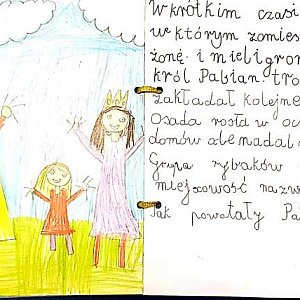 W krótkim czasi
w którym zamies
żonę. i mieli gron
król Pabian. tro
zakładał kolejne
Osada rosła w oc
domów ale nadal
Grupa rybaków
miejscowość nazw
Jak powstały Pa